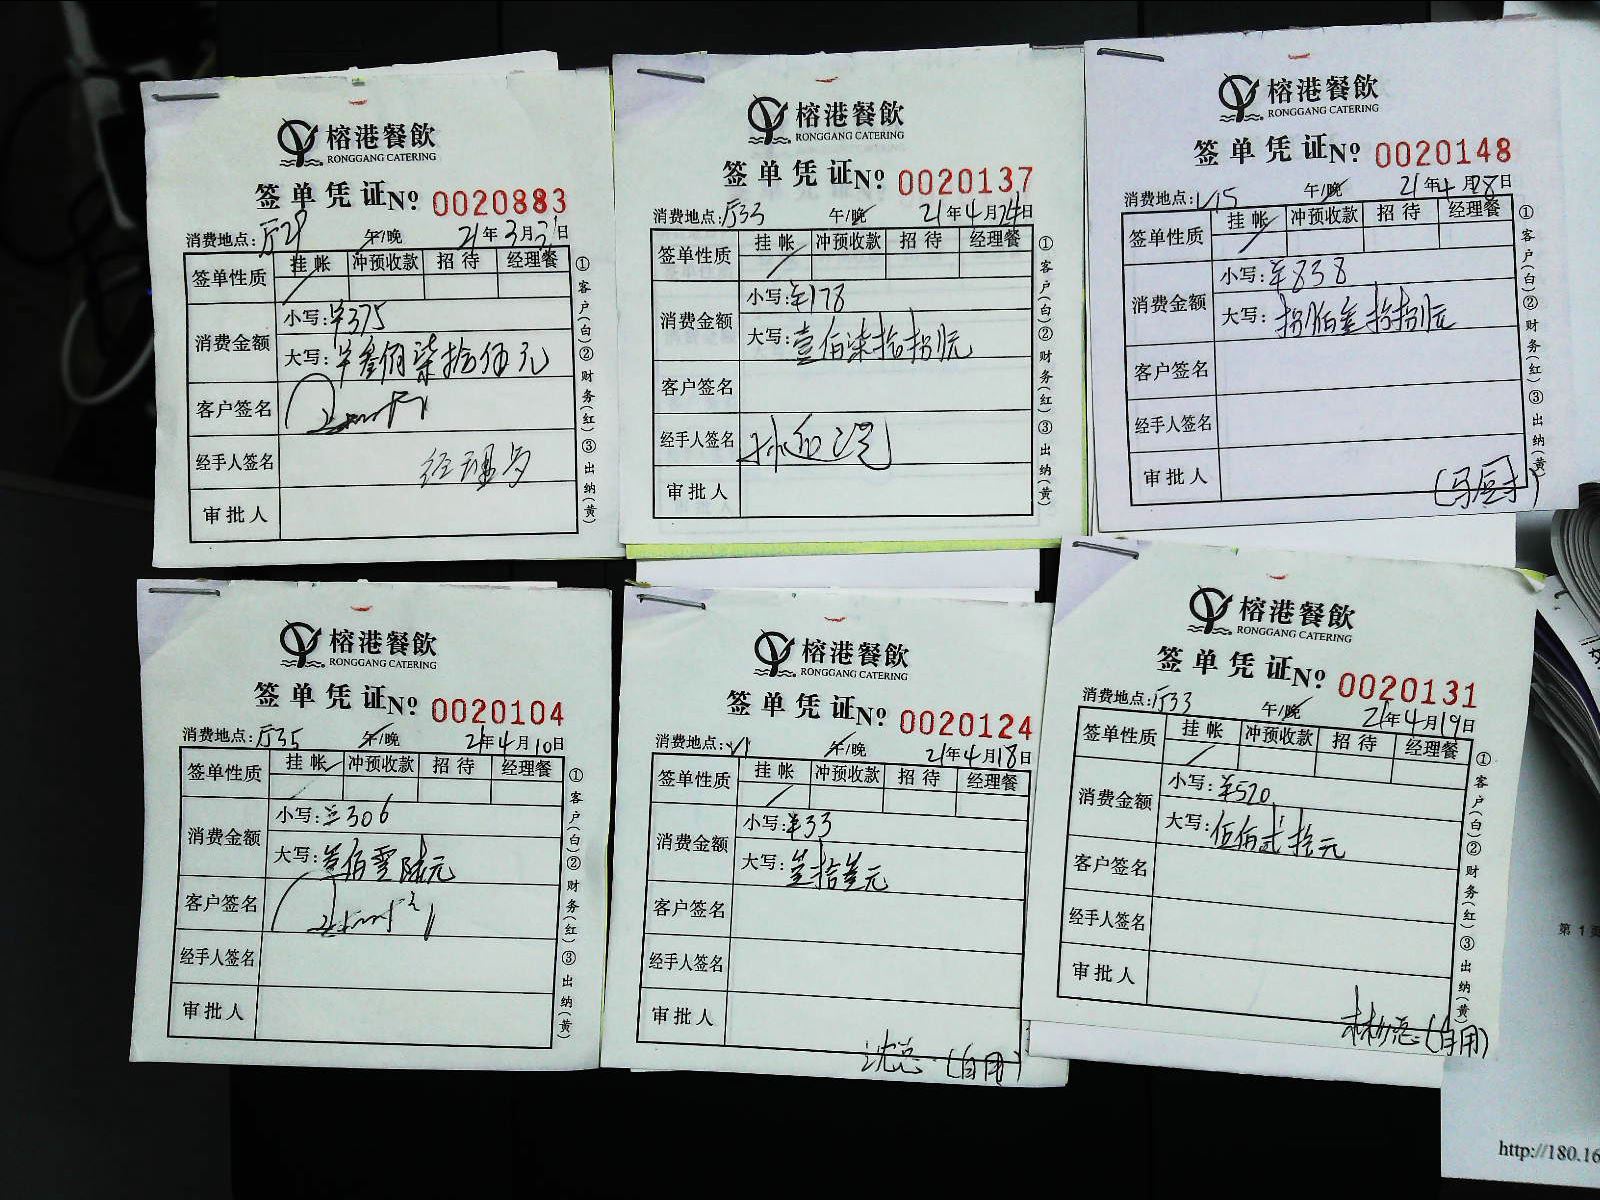 榕港餐飲
RONGGANG CATERING
签单凭证№ 0020883
消费地点:厅29 午/晚 21年3月31日
签单性质 挂帐 冲预收款 招待 经理餐
消费金额 小写:¥375
大写:叁佰柒拾伍元
客户签名
经手人签名
审批人
①客户(白)②财务(红)③出纳(黄)
榕港餐飲
RONGGANG CATERING
签单凭证№ 0020137
消费地点:厅33 午/晚 21年4月24日
签单性质 挂帐 冲预收款 招待 经理餐
消费金额 小写:¥178
大写:壹佰柒拾捌元
客户签名
经手人签名
审批人
①客户(白)②财务(红)③出纳(黄)
榕港餐飲
RONGGANG CATERING
签单凭证№ 0020148
消费地点:V15 午/晚 21年4月28日
签单性质 挂帐 冲预收款 招待 经理餐
消费金额 小写:¥838
大写:捌佰叁拾捌元
客户签名
经手人签名
审批人
①客户(白)②财务(红)③出纳(黄)
榕港餐飲
RONGGANG CATERING
签单凭证№ 0020104
消费地点:厅35 午/晚 21年4月10日
签单性质 挂帐 冲预收款 招待 经理餐
消费金额 小写:¥306
大写:叁佰零陆元
客户签名
经手人签名
审批人
①客户(白)②财务(红)③出纳(黄)
榕港餐飲
RONGGANG CATERING
签单凭证№ 0020124
消费地点:V1 午/晚 21年4月18日
签单性质 挂帐 冲预收款 招待 经理餐
消费金额 小写:¥33
大写:叁拾叁元
客户签名
经手人签名
审批人
沈总(自用)
榕港餐飲
RONGGANG CATERING
签单凭证№ 0020131
消费地点:厅33 午/晚 21年4月19日
签单性质 挂帐 冲预收款 招待 经理餐
消费金额 小写:¥520
大写:伍佰贰拾元
客户签名
经手人签名
审批人
林总(自用)
①客户(白)②财务(红)③出纳(黄)
第 1 页
http://180.16